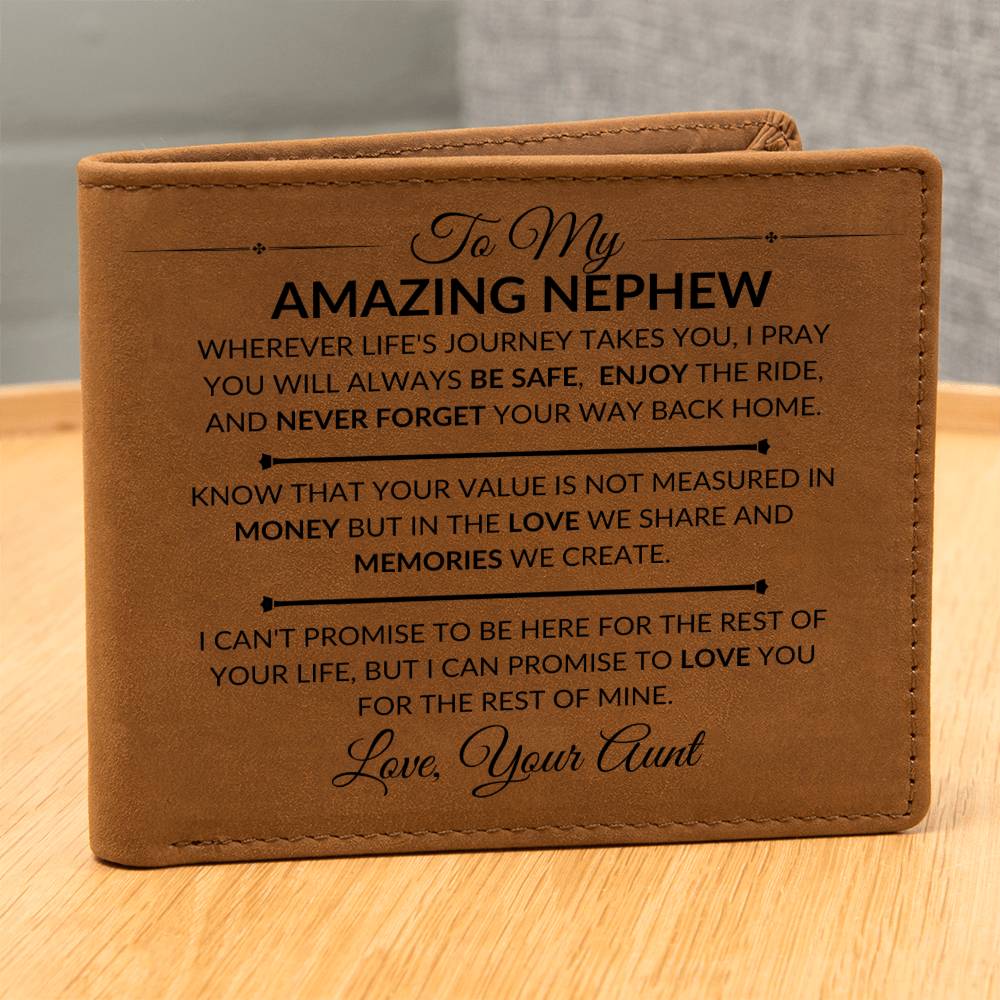 To My
AMAZING NEPHEW
WHEREVER LIFE'S JOURNEY TAKES YOU, I PRAY
YOU WILL ALWAYS BE SAFE, ENJOY THE RIDE,
AND NEVER FORGET YOUR WAY BACK HOME.
KNOW THAT YOUR VALUE IS NOT MEASURED IN
MONEY BUT IN THE LOVE WE SHARE AND
MEMORIES WE CREATE.
I CAN'T PROMISE TO BE HERE FOR THE REST OF
YOUR LIFE, BUT I CAN PROMISE TO LOVE YOU
FOR THE REST OF MINE.
Love, Your Aunt